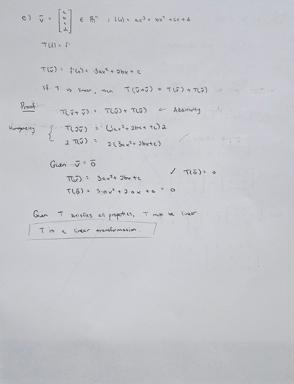 e) v̄ = [a b c d] ∈ ℝⁿ ; f(x) = ax³ + bx² + cx + d
T(f) = f'
T(v̄) = f'(x) = 3ax² + 2bx + c
If T is linear, then T(ū+v̄) = T(ū) + T(v̄)
Proof
T(ū + v̄) = T(ū) + T(v̄) ← Additivity
Homogeneity { T(2v̄) = (3ax² + 2bx + c) 2
2 T(v̄) = 2(3ax² + 2bx + c) ✓
Given v̄ = 0̄
T(v̄) = 3ax² + 2bx + c ✓ T(0̄) = 0
T(0̄) = 3·0x² + 2·0x + 0 = 0
Given T satisfies all properties, T must be linear
T is a linear transformation.